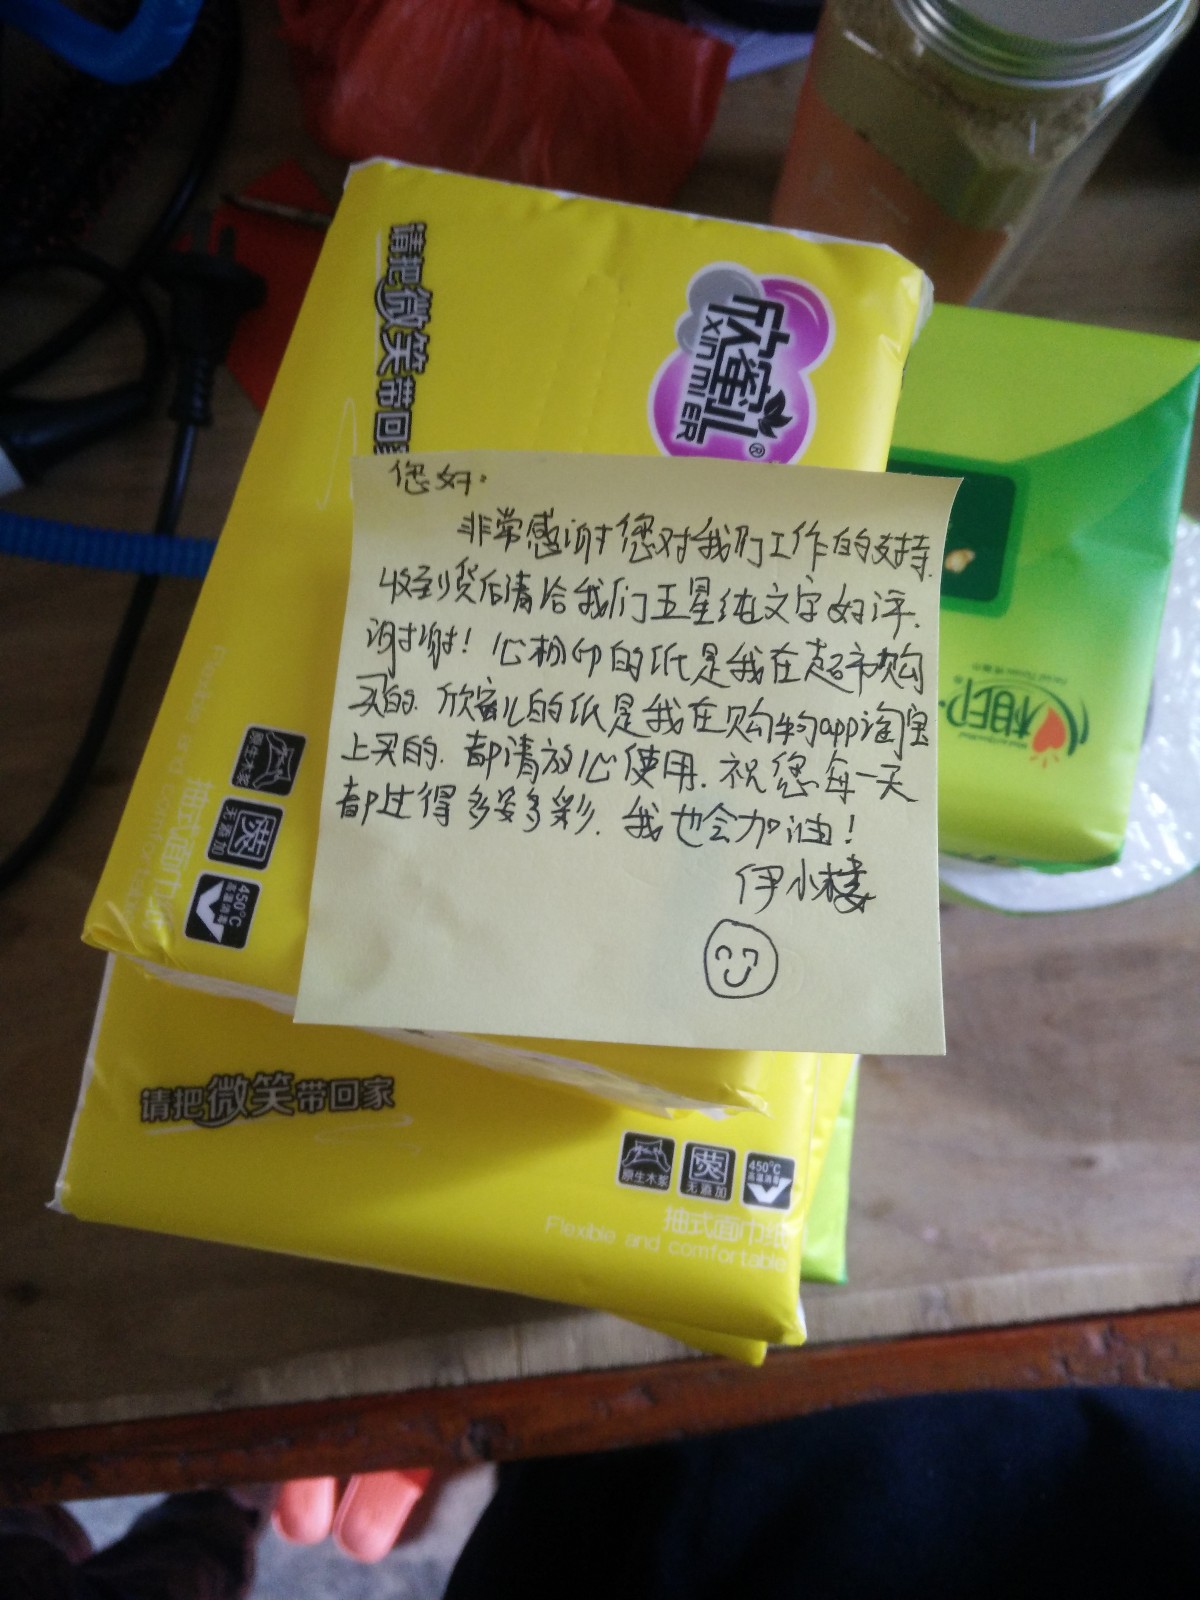 请把微笑带回家
欣蜜儿®
XIN MI ER
您好:
非常感谢您对我们工作的支持.
收到货后请给我们五星纯文字好评.
谢谢! 心相印的纸是我在超市购
买的. 欣蜜儿的纸是我在购物app淘宝
上买的. 都请放心使用. 祝您每一天
都过得多姿多彩. 我也会加油!
伊小楼
相印
Flexible and comfortable
抽式面巾纸
原生木浆
荧
无添加
450°C
高温消毒
请把微笑带回家
原生木浆
荧
无添加
450°C
高温消毒
抽式面巾纸
Flexible and comfortable